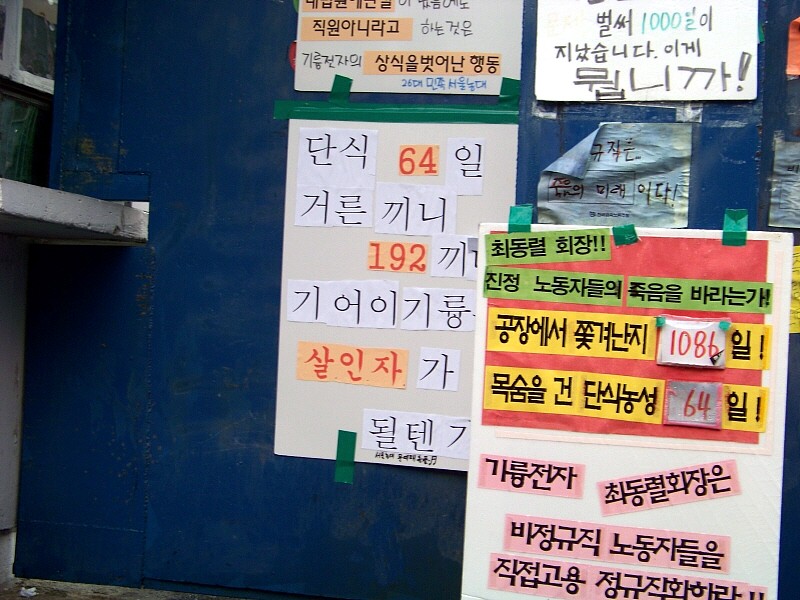 직원아니라고 하는것은
기륭전자의 상식을벗어난 행동
벌써 1000일이
지났습니다. 이게
뭡니까!
단식 64 일
거른 끼니
192 끼니
기어이기륭
살인자 가
될텐
규직은
의 미래 이다!
최동렬 회장!!
진정 노동자들의 죽음을 바라는가!
공장에서 쫓겨난지 1086 일!
목숨을 건 단식농성 64 일!
기륭전자 최동렬회장은
비정규직 노동자들을
직접고용 정규직화하라!!